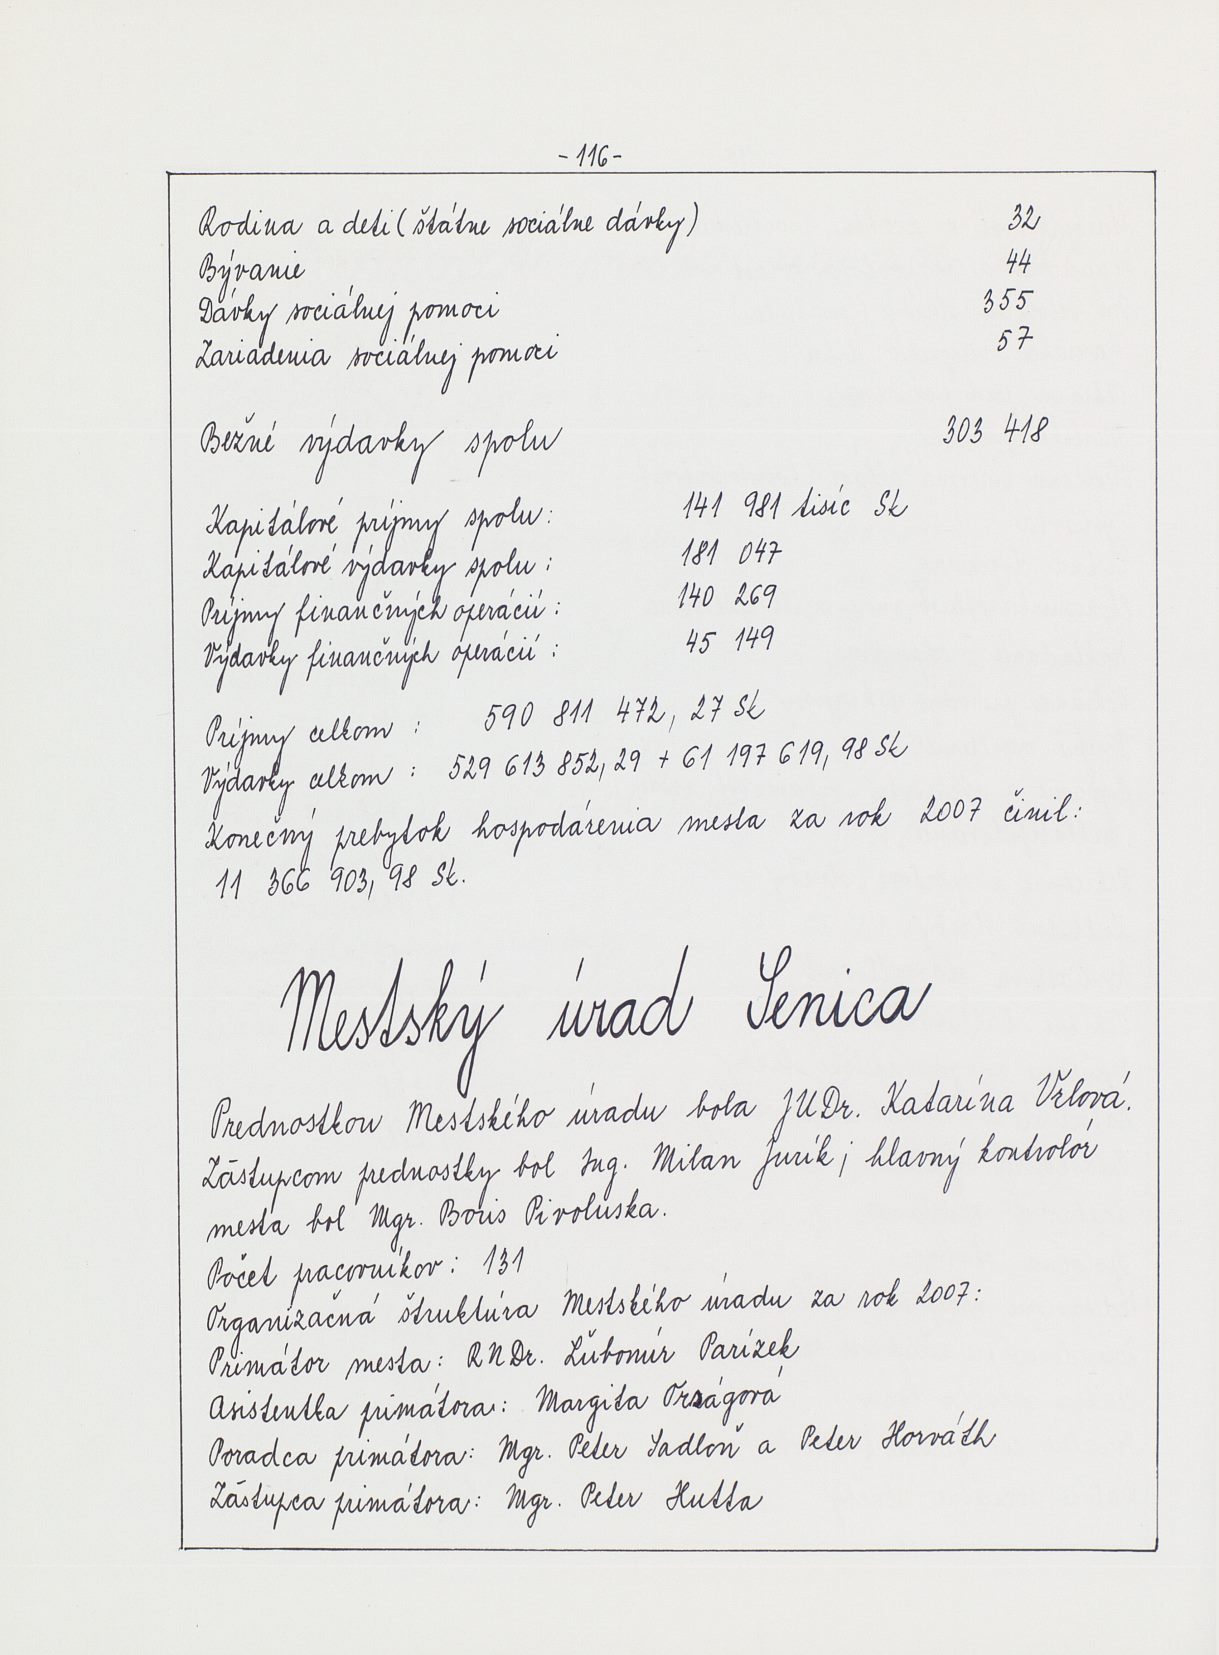 -116-
Rodina a deti (štátne sociálne dávky) 32
Bývanie 44
Dávky sociálnej pomoci 355
Zariadenia sociálnej pomoci 57
Bežné výdavky spolu 303 418
Kapitálové príjmy spolu: 141 981 tisíc Sk
Kapitálové výdavky spolu: 181 047
Príjmy finančných operácií: 140 269
Výdavky finančných operácií: 45 149
Príjmy celkom: 590 811 472,27 Sk
Výdavky celkom: 529 613 852,29 + 61 197 619,98 Sk
Konečný prebytok hospodárenia mesta za rok 2007 činil:
11 366 903,98 Sk.
Mestský úrad Senica
Prednostkou Mestského úradu bola JUDr. Katarína Vrlová.
Zástupcom prednostky bol Ing. Milan Jurík; hlavný kontrolór
mesta bol Mgr. Boris Pivoluska.
Počet pracovníkov: 131
Organizačná štruktúra Mestského úradu za rok 2007:
Primátor mesta: RNDr. Ľubomír Parízek
Asistentka primátora: Margita Orságová
Poradca primátora: Mgr. Peter Sadloň a Peter Horváth
Zástupca primátora: Mgr. Peter Hutta